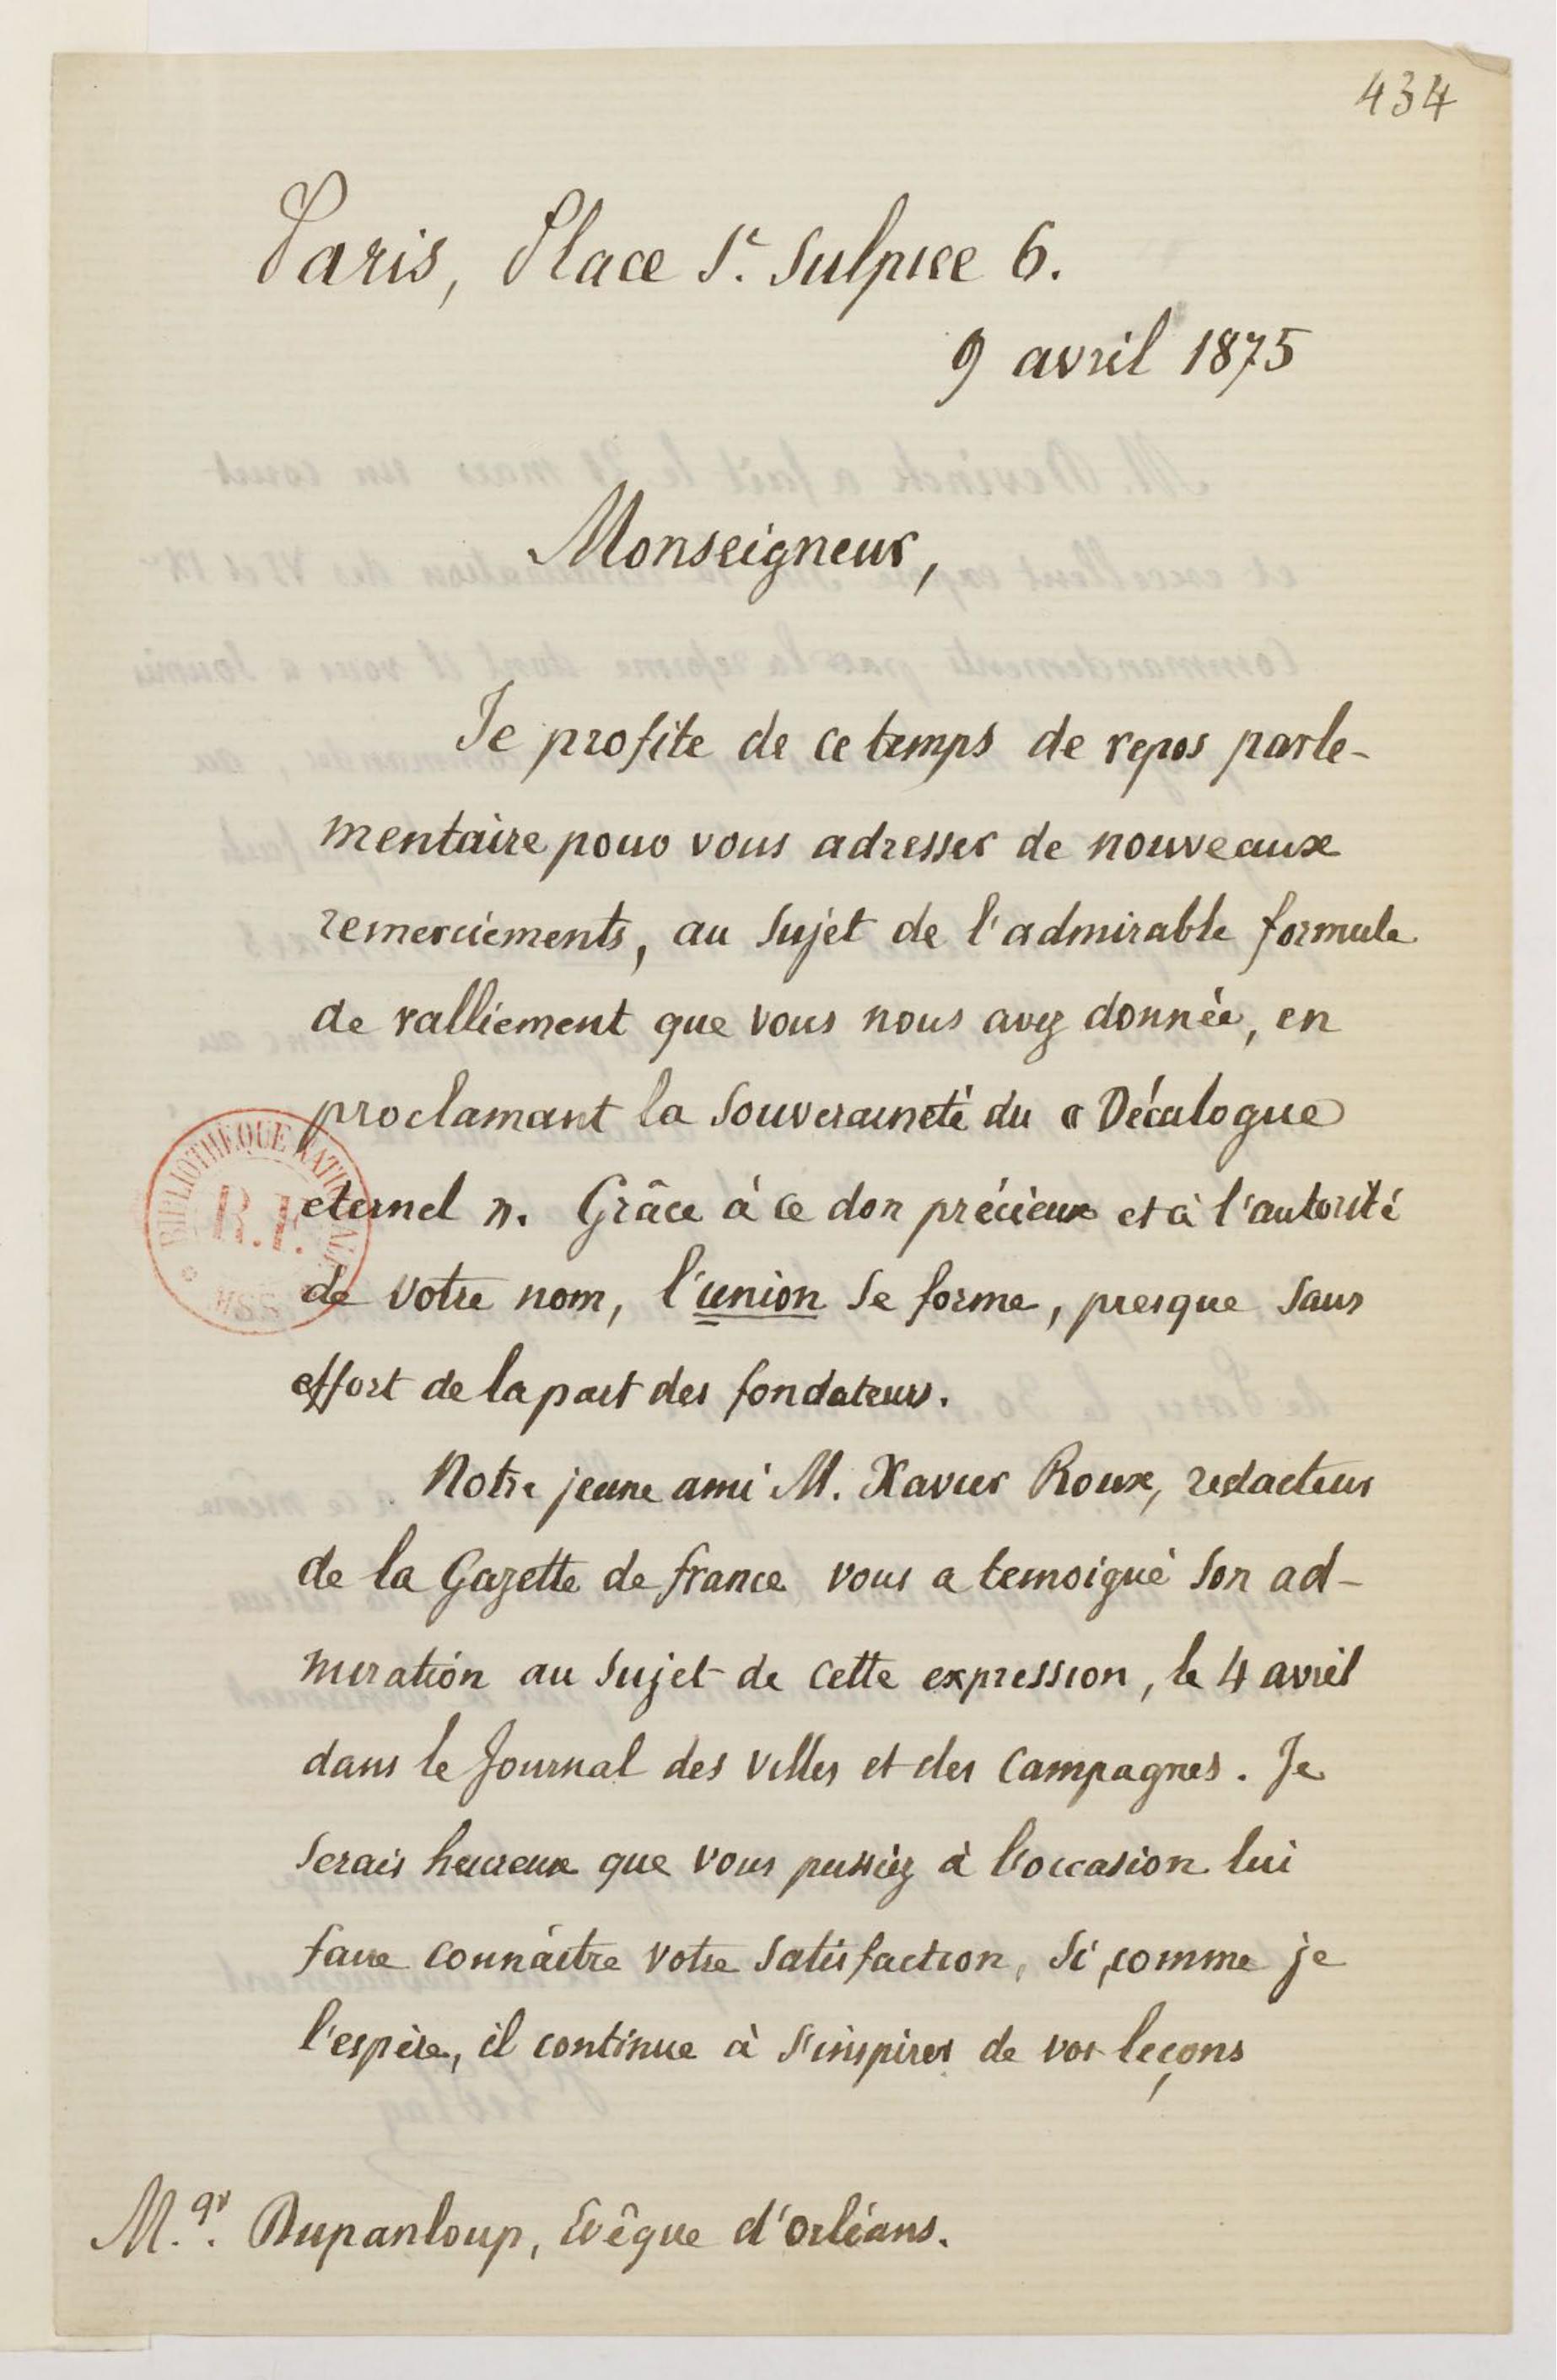 434
Paris, Place St. Sulpice 6.
9 avril 1875
Monseigneur,
Je profite de ce temps de repos parle-
mentaire pour vous adresser de nouveaux
remerciements, au sujet de l'admirable formule
de ralliement que vous nous avez donnée, en
proclamant la souveraineté du « Décalogue
eternel ». Grâce à ce don précieux et à l'autorité
de votre nom, l'union se forme, presque sans
effort de la part des fondateurs.
Notre jeune ami M. Xavier Roux, redacteur
de la Gazette de france vous a temoigné son ad-
miration au sujet de cette expression, le 4 avril
dans le Journal des Villes et des Campagnes. Je
serais heureux que vous pussiez à l'occasion lui
faire connaître votre satisfaction, si, comme je
l'espère, il continue à s'inspirer de vos leçons
Mgr. Dupanloup, Evêque d'Orléans.
BIBLIOTHÈQUE NATIONALE
R.F.
MSS